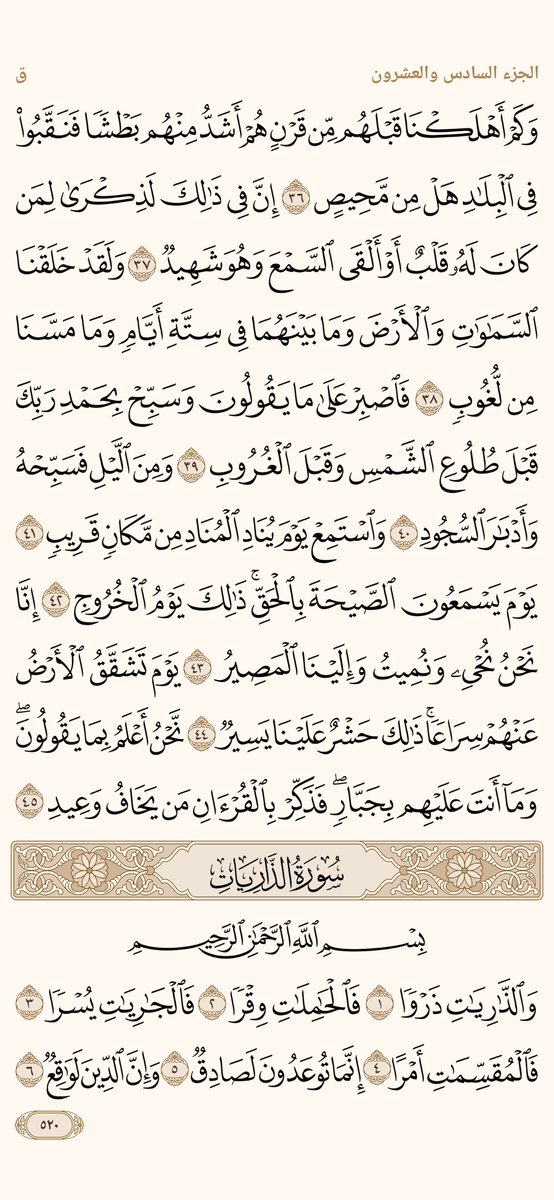 الجزء السادس والعشرون
ق
وَكَمْ أَهْلَكْنَا قَبْلَهُم مِّن قَرْنٍ هُمْ أَشَدُّ مِنْهُم بَطْشًا فَنَقَّبُوا۟
فِى ٱلْبِلَـٰدِ هَلْ مِن مَّحِيصٍ ٣٦ إِنَّ فِى ذَٰلِكَ لَذِكْرَىٰ لِمَن
كَانَ لَهُۥ قَلْبٌ أَوْ أَلْقَى ٱلسَّمْعَ وَهُوَ شَهِيدٌ ٣٧ وَلَقَدْ خَلَقْنَا
ٱلسَّمَـٰوَٰتِ وَٱلْأَرْضَ وَمَا بَيْنَهُمَا فِى سِتَّةِ أَيَّامٍ وَمَا مَسَّنَا
مِن لُّغُوبٍ ٣٨ فَٱصْبِرْ عَلَىٰ مَا يَقُولُونَ وَسَبِّحْ بِحَمْدِ رَبِّكَ
قَبْلَ طُلُوعِ ٱلشَّمْسِ وَقَبْلَ ٱلْغُرُوبِ ٣٩ وَمِنَ ٱلَّيْلِ فَسَبِّحْهُ
وَأَدْبَـٰرَ ٱلسُّجُودِ ٤٠ وَٱسْتَمِعْ يَوْمَ يُنَادِ ٱلْمُنَادِ مِن مَّكَانٍ قَرِيبٍ ٤١
يَوْمَ يَسْمَعُونَ ٱلصَّيْحَةَ بِٱلْحَقِّ ۚ ذَٰلِكَ يَوْمُ ٱلْخُرُوجِ ٤٢ إِنَّا
نَحْنُ نُحْىِۦ وَنُمِيتُ وَإِلَيْنَا ٱلْمَصِيرُ ٤٣ يَوْمَ تَشَقَّقُ ٱلْأَرْضُ
عَنْهُمْ سِرَاعًا ۚ ذَٰلِكَ حَشْرٌ عَلَيْنَا يَسِيرٌ ٤٤ نَّحْنُ أَعْلَمُ بِمَا يَقُولُونَ ۖ
وَمَآ أَنتَ عَلَيْهِم بِجَبَّارٍ ۖ فَذَكِّرْ بِٱلْقُرْءَانِ مَن يَخَافُ وَعِيدِ ٤٥
سُورَةُ الذَّارِيَاتِ
بِسْمِ ٱللَّهِ ٱلرَّحْمَـٰنِ ٱلرَّحِيمِ
وَٱلذَّٰرِيَـٰتِ ذَرْوًا ١ فَٱلْحَـٰمِلَـٰتِ وِقْرًا ٢ فَٱلْجَـٰرِيَـٰتِ يُسْرًا ٣
فَٱلْمُقَسِّمَـٰتِ أَمْرًا ٤ إِنَّمَا تُوعَدُونَ لَصَادِقٌ ٥ وَإِنَّ ٱلدِّينَ لَوَٰقِعٌ ٦
٥٢٠